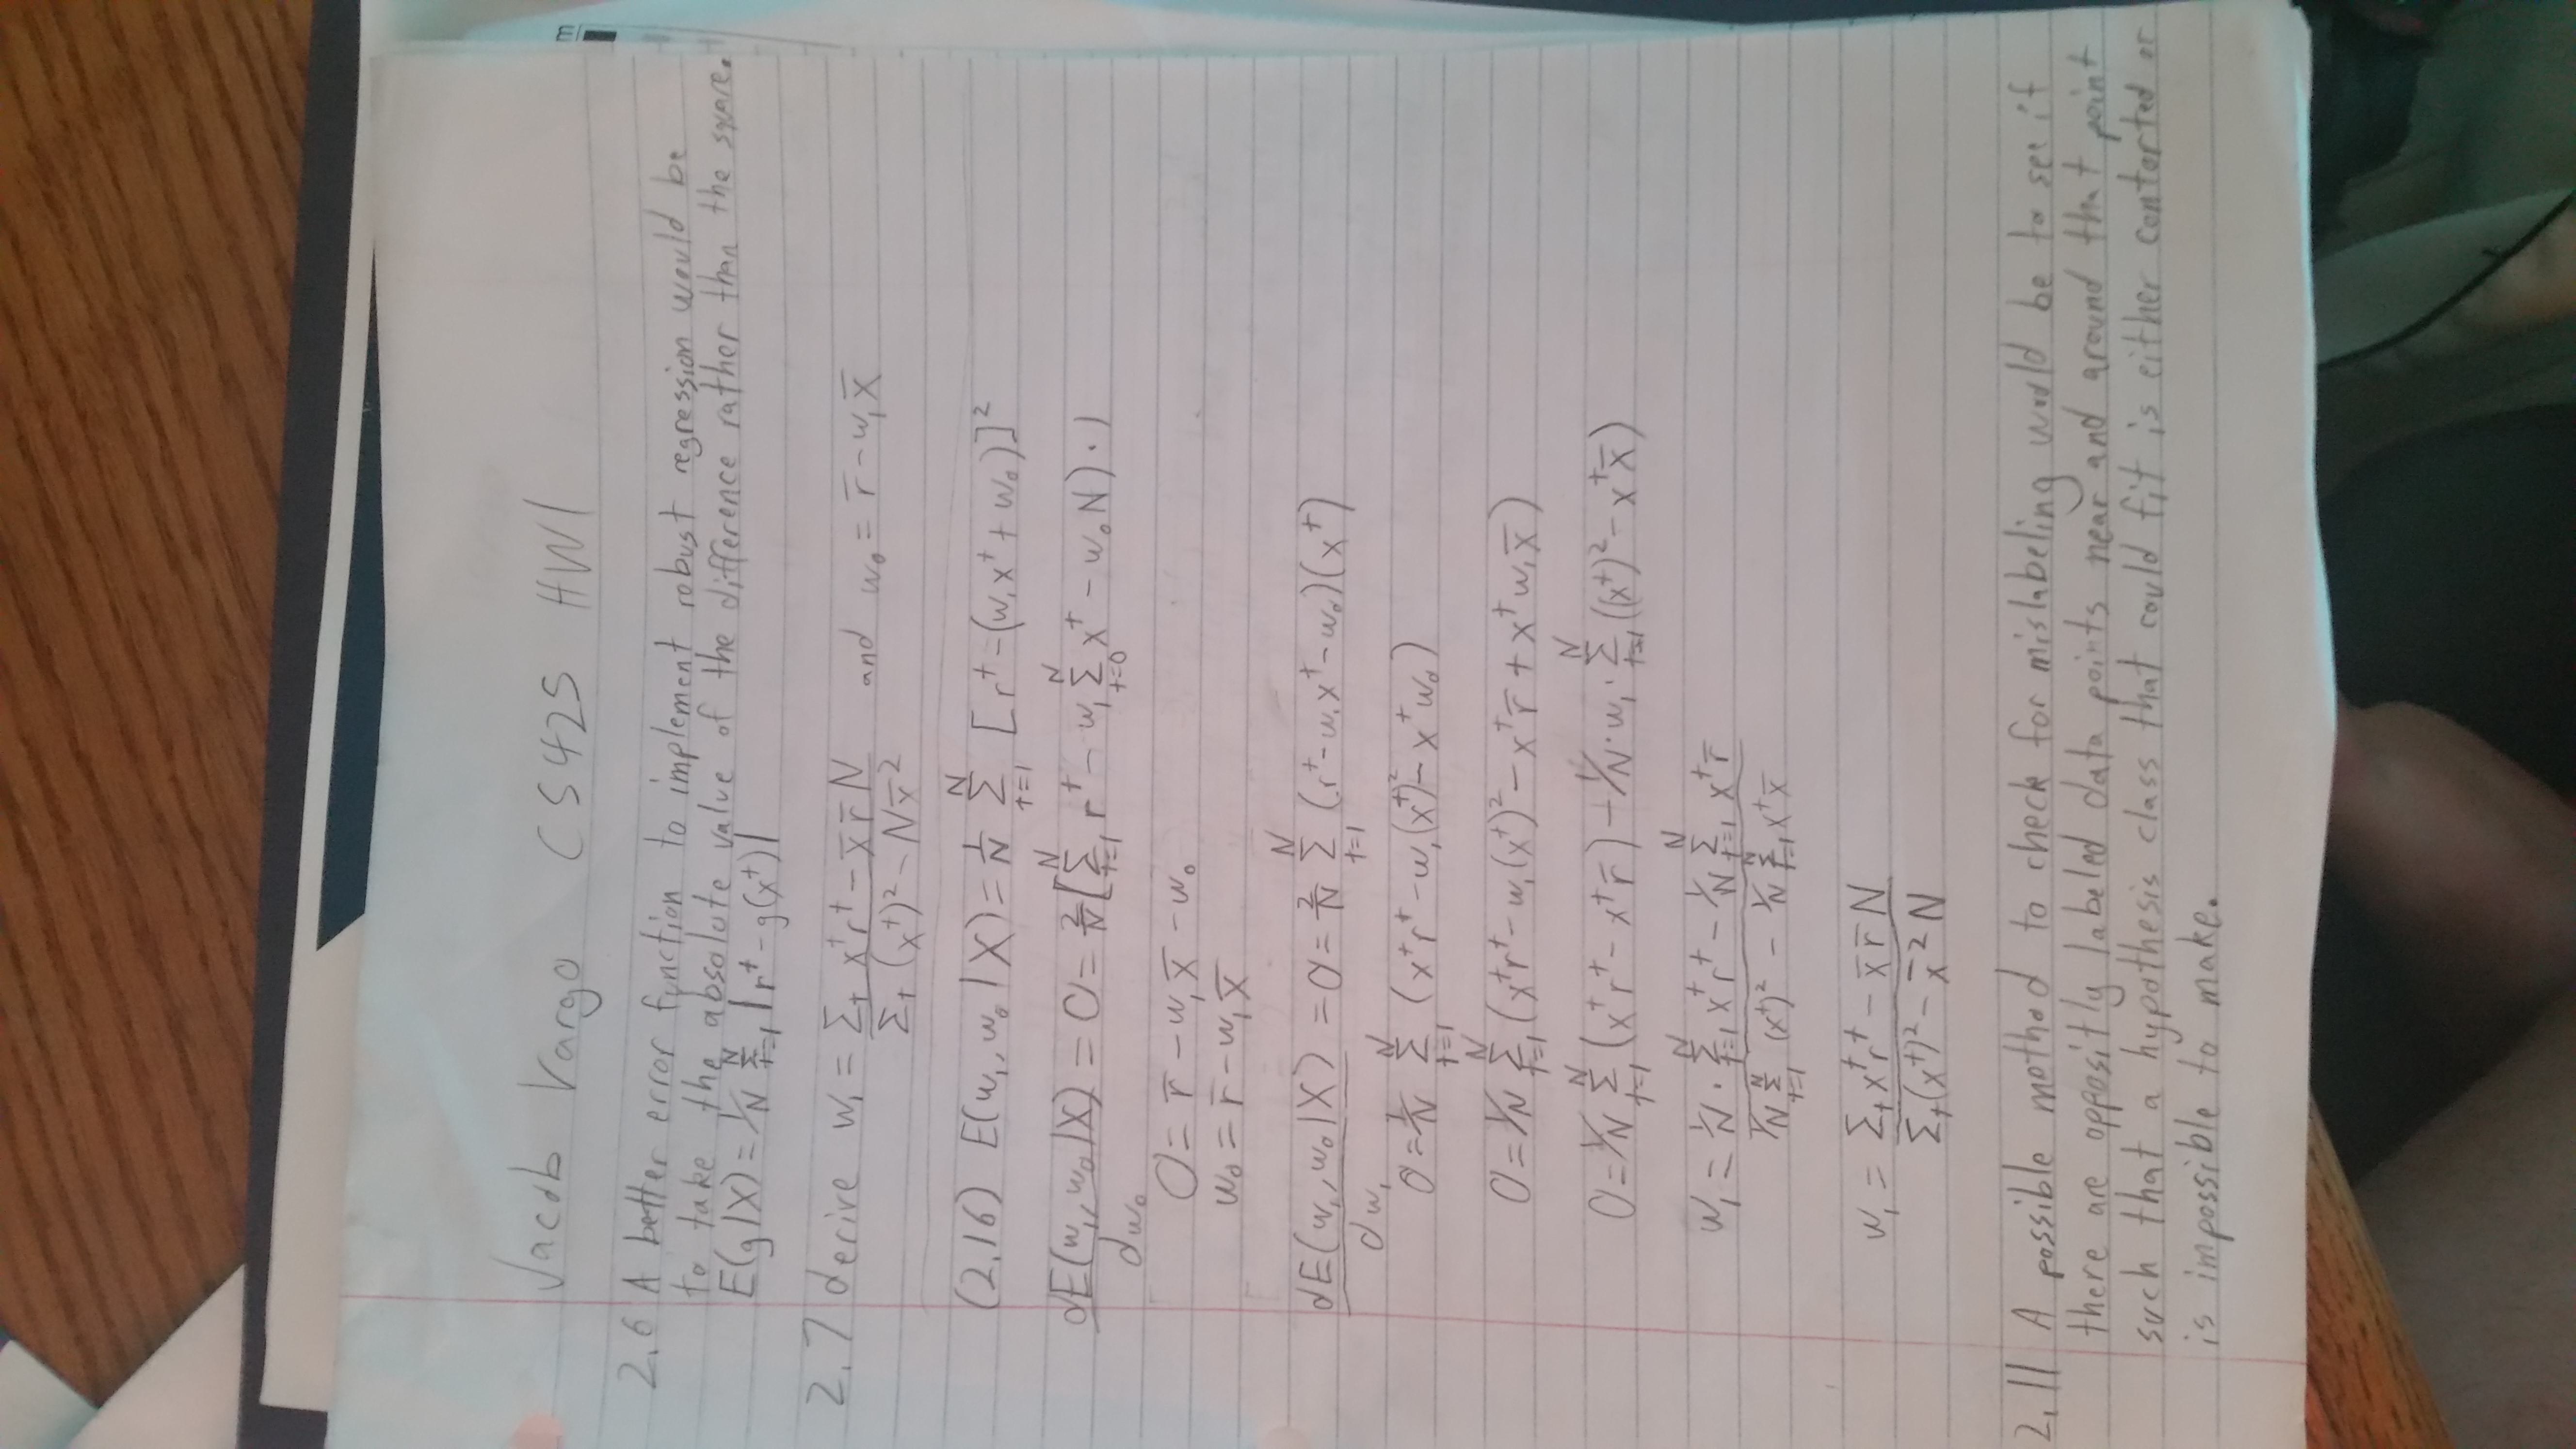 Jacob Vargo CS425 HW1
2.6 A better error function to implement robust regression would be
to take the absolute value of the difference rather than the square.
E(g|X) = 1/N Σ_{t=1}^{N} |r^t - g(x^t)|
2.7 derive w₁ = (Σ_t x^t r^t - x̄ r̄ N) / (Σ_t (x^t)² - N x̄²) and w₀ = r̄ - w₁x̄
(2.16) E(w₁, w₀ | X) = 1/N Σ_{t=1}^{N} [r^t - (w₁x^t + w₀)]²
dE(w₁, w₀ | X) / dw₀ = 0 = 2/N [Σ_{t=1}^{N} r^t - w₁ Σ_{t=0}^{N} x^t - w₀N) · 1
0 = r̄ - w₁x̄ - w₀
w₀ = r̄ - w₁x̄
dE(w₁, w₀ | X) / dw₁ = 0 = 2/N Σ_{t=1}^{N} (r^t - w₁x^t - w₀)(x^t)
0 = 1/N Σ_{t=1}^{N} (x^t r^t - w₁(x^t)² - x^t w₀)
0 = 1/N Σ_{t=1}^{N} (x^t r^t - w₁(x^t)² - x^t r̄ + x^t w₁x̄)
0 = 1/N Σ_{t=1}^{N} (x^t r^t - x^t r̄) - 1/N · w₁ · Σ_{t=1}^{N} ((x^t)² - x^t x̄)
w₁ = (1/N · Σ_{t=1}^{N} x^t r^t - 1/N Σ_{t=1}^{N} x^t r̄) / (1/N Σ_{t=1}^{N} (x^t)² - 1/N Σ_{t=1}^{N} x^t x̄)
w₁ = (Σ_t x^t r^t - x̄ r̄ N) / (Σ_t (x^t)² - x̄² N)
2.11 A possible method to check for mislabeling would be to see if
there are oppositly labeled data points near and around that point
such that a hypothesis class that could fit is either contorted or
is impossible to make.